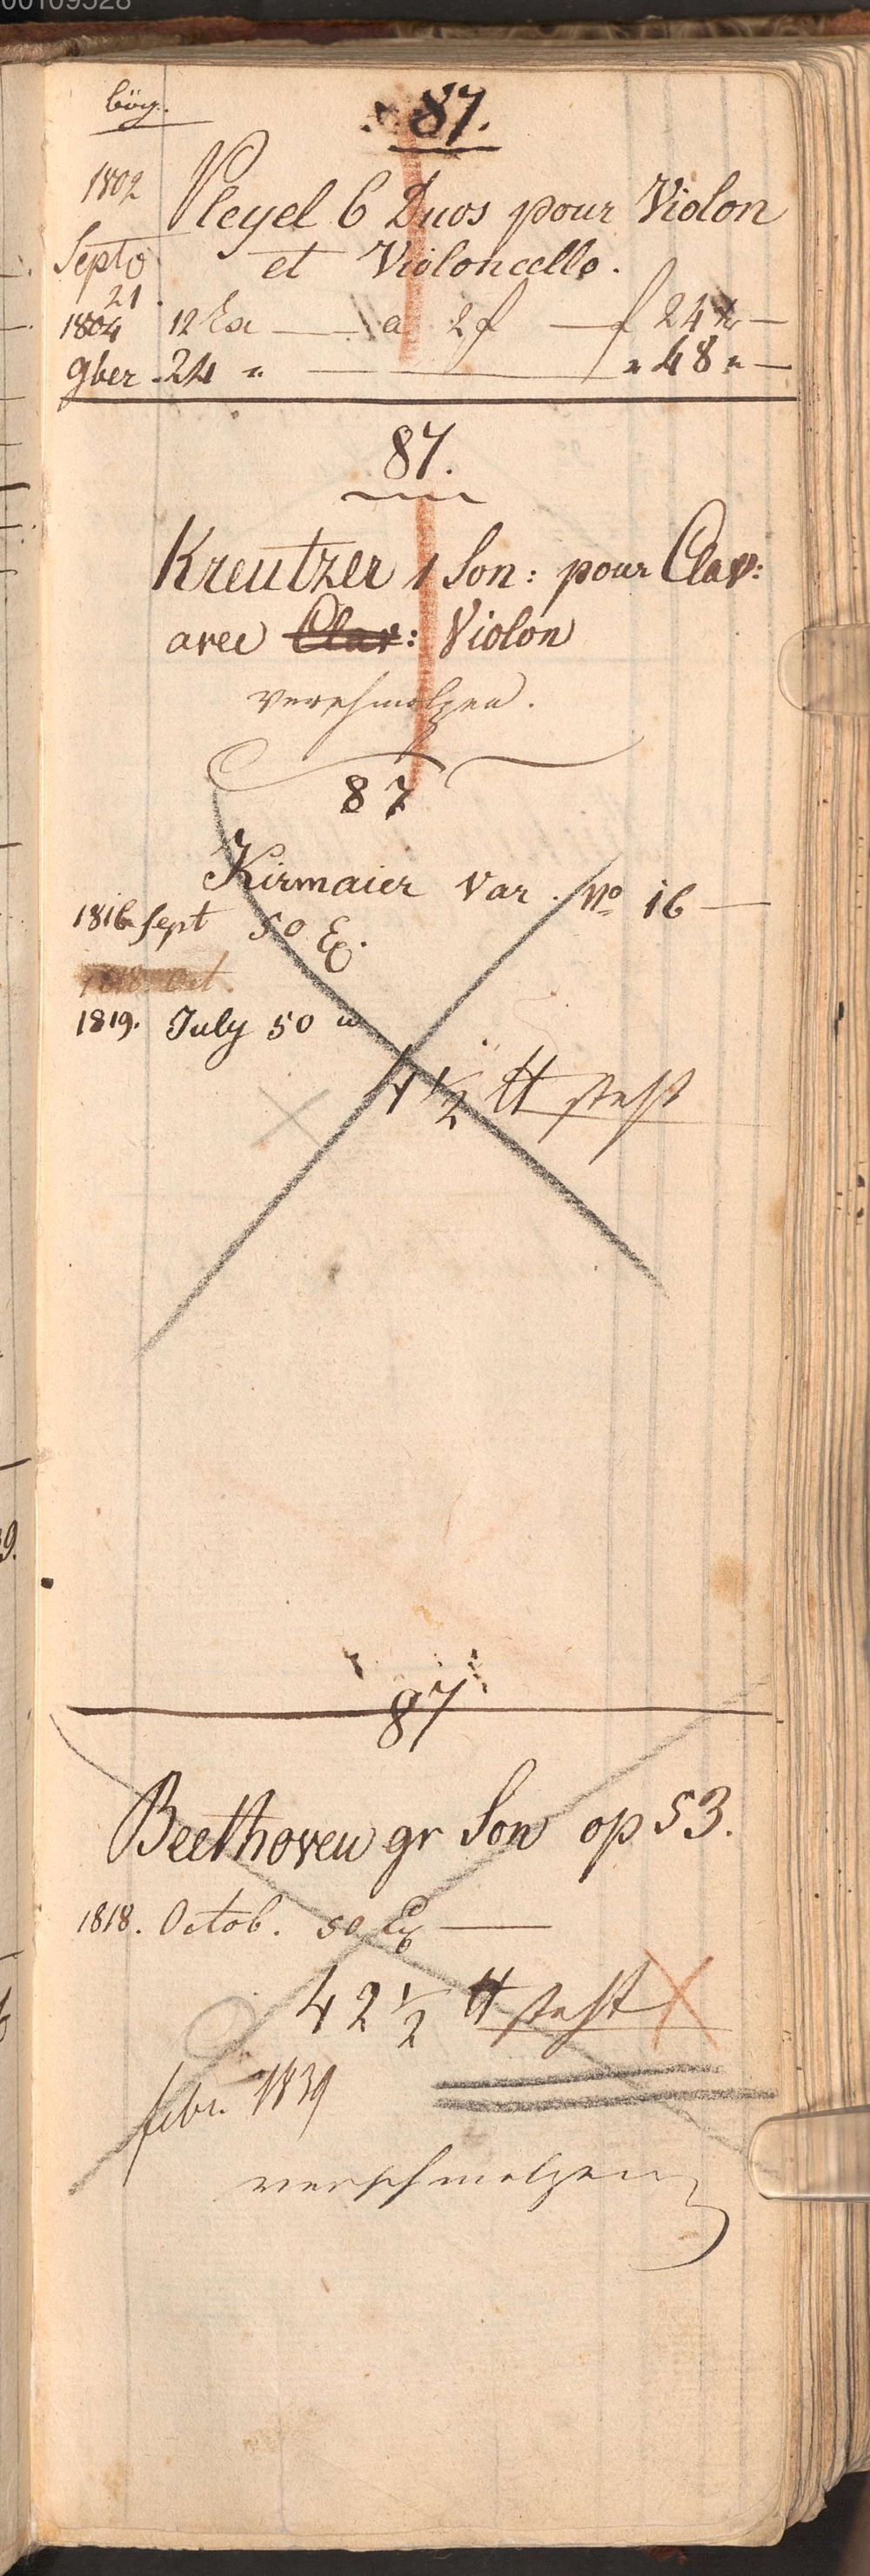 00109528
87.
1802 Pleyel 6 Duos pour Violon
Septb et Violoncello.
21.
1804 12 Ex — a 2 f — f 24 x —
9ber 24 " — " 48 " —
87.
Kreutzer 1 Son: pour Clav:
avec Clav: Violon
verschmolzen.
87
Kirmaier Var. No 16 —
1816 Sept 50 Ex.
1818 Oct.
1819. July 50 "
4 1/2 ℔ steht
87
Beethoven gr Son op 53.
1818. Octob. 50 Ex —
42 1/2 ℔ steht
febr. 1839
verschmolzen